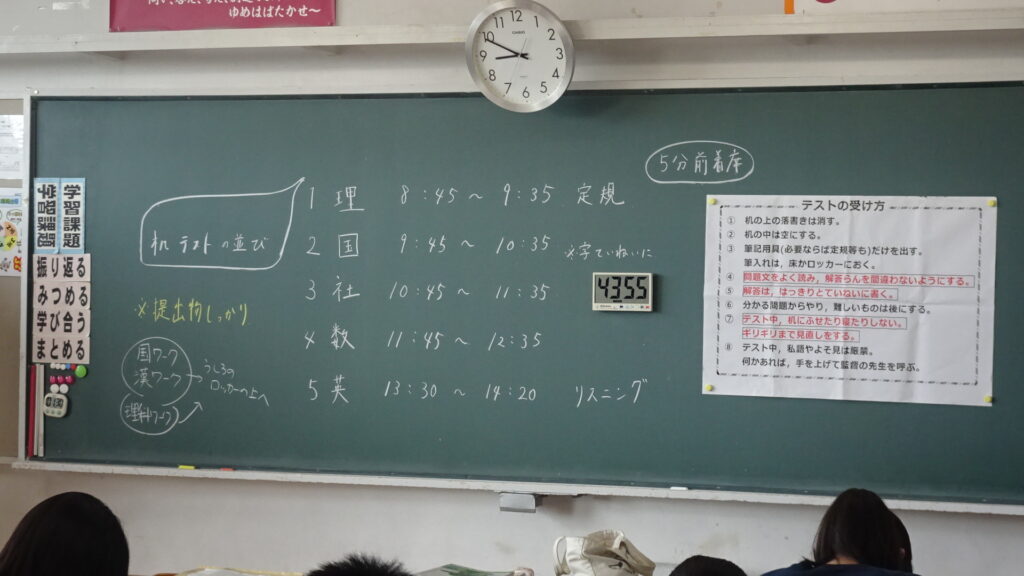 ゆめはばたかせ～
12
1
2
3
4
5
6
7
8
9
10
11
CASIO
5分前着席
机 テストの並び
1 理 8:45 ～ 9:35 定規
2 国 9:45 ～ 10:35 ※字ていねいに
3 社 10:45 ～ 11:35
4 数 11:45 ～ 12:35
5 英 13:30 ～ 14:20 リスニング
※提出物しっかり
国ワーク
漢ワーク
理科ワーク
うしろの
ロッカーの上へ
学習課題
学習課題
振り返る
みつめる
学び合う
まとめる
4355
テストの受け方
① 机の上の落書きは消す。
② 机の中は空にする。
③ 筆記用具(必要ならば定規等も)だけを出す。
筆入れは，床かロッカーにおく。
④ 問題文をよく読み，解答らんを間違わないようにする。
⑤ 解答は，はっきりとていねいに書く。
⑥ 分かる問題からやり，難しいものは後にする。
⑦ テスト中，机にふせたり寝たりしない。
ギリギリまで見直しをする。
⑧ テスト中，私語やよそ見は厳禁。
何かあれば，手を上げて監督の先生を呼ぶ。